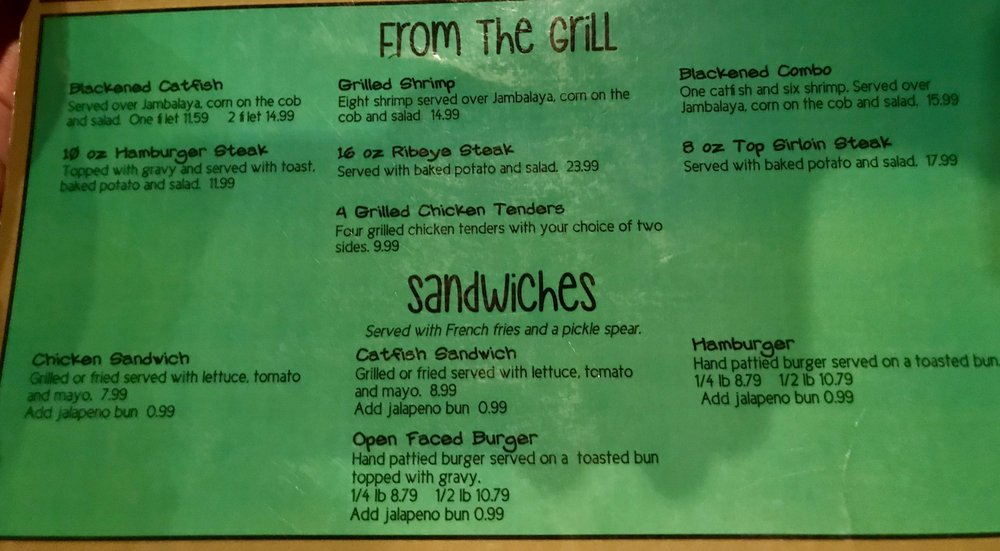 From The Grill
Blackened Catfish
Served over Jambalaya, corn on the cob
and salad. One filet 11.59 2 filet 14.99
Grilled Shrimp
Eight shrimp served over Jambalaya, corn on the
cob and salad 14.99
Blackened Combo
One catfish and six shrimp. Served over
Jambalaya, corn on the cob and salad. 15.99
10 oz Hamburger Steak
Topped with gravy and served with toast,
baked potato and salad. 11.99
16 oz Ribeye Steak
Served with baked potato and salad. 23.99
8 oz Top Sirloin Steak
Served with baked potato and salad. 17.99
4 Grilled Chicken Tenders
Four grilled chicken tenders with your choice of two
sides. 9.99
Sandwiches
Served with French fries and a pickle spear.
Chicken Sandwich
Grilled or fried served with lettuce, tomato
and mayo. 7.99
Add jalapeno bun 0.99
Catfish Sandwich
Grilled or fried served with lettuce, tomato
and mayo. 8.99
Add jalapeno bun 0.99
Hamburger
Hand pattied burger served on a toasted bun.
1/4 lb 8.79 1/2 lb 10.79
Add jalapeno bun 0.99
Open Faced Burger
Hand pattied burger served on a toasted bun
topped with gravy.
1/4 lb 8.79 1/2 lb 10.79
Add jalapeno bun 0.99